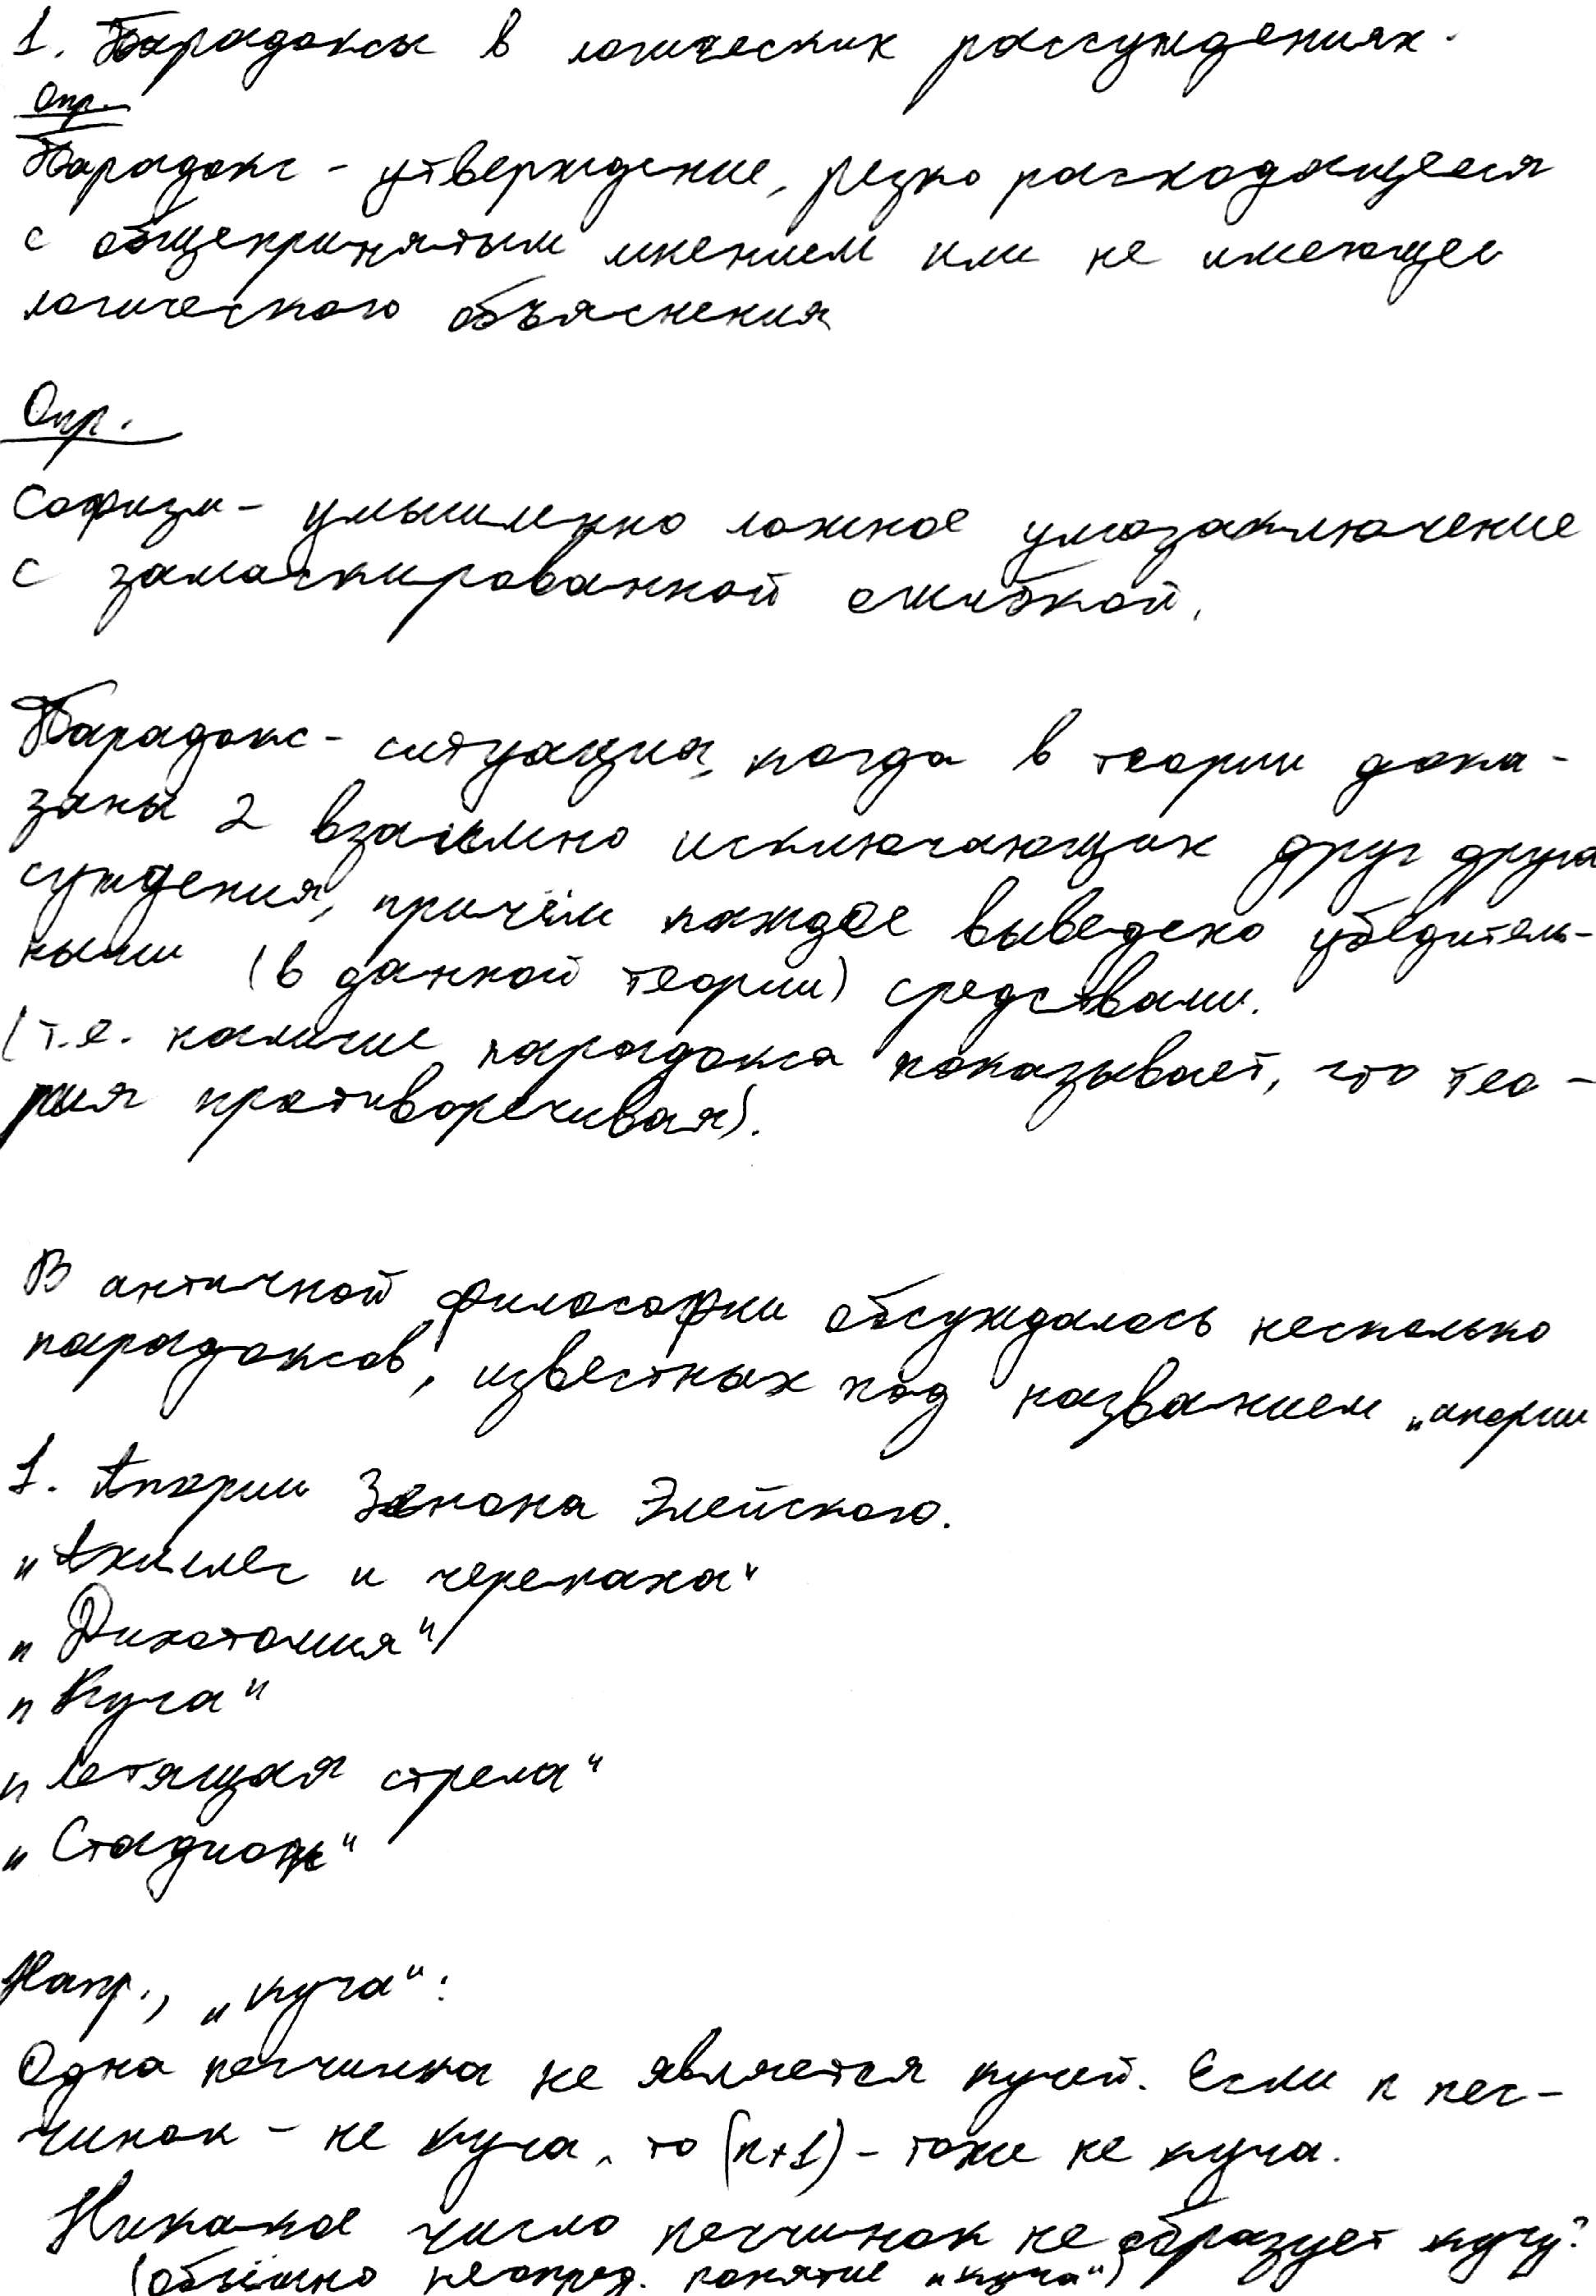 1. Парадоксы в логических рассуждениях.
Опр.
Парадокс - утверждение, резко расходящееся
с общепринятым мнением или не имеющее
логического объяснения
Опр.
Софизм - умышленно ложное умозаключение
с замаскированной ошибкой.
Парадокс - ситуация, когда в теории дока-
заны 2 взаимно исключающих друг друга
суждения, причём каждое выведено убедитель-
ными (в данной теории) средствами.
(т.е. наличие парадокса показывает, что тео-
рия противоречивая).
В античной философии обсуждалось несколько
парадоксов, известных под названием „апории
1. Апории Зенона Элейского.
„Ахиллес и черепаха“
„Дихотомия“
„Куча“
„Летящая стрела“
„Стадион“
Напр., „куча“:
Одна песчинка не является кучей. Если n пес-
чинок - не куча, то (n+1) - тоже не куча.
Никакое число песчинок не образует кучу?
неопред. понятие „куча“)